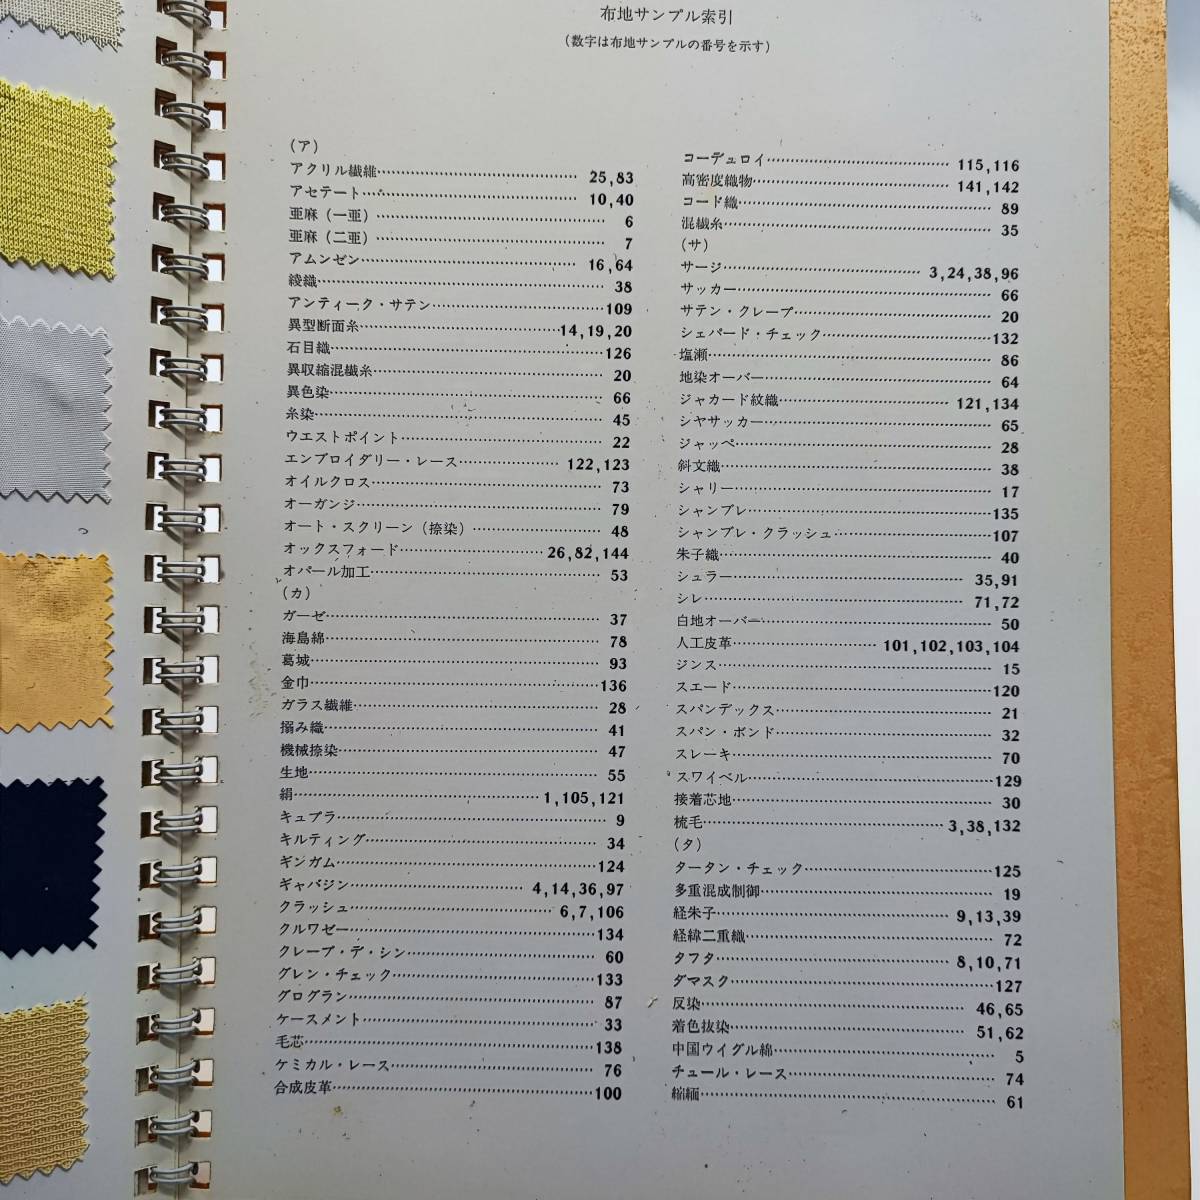 布地サンプル索引
(数字は布地サンプルの番号を示す)
(ア)
アクリル繊維 25,83
アセテート 10,40
亜麻(一亜) 6
亜麻(二亜) 7
アムンゼン 16,64
綾織 38
アンティーク・サテン 109
異型断面糸 14,19,20
石目織 126
異収縮混繊糸 20
異色染 66
糸染 45
ウエストポイント 22
エンブロイダリー・レース 122,123
オイルクロス 73
オーガンジ 79
オート・スクリーン(捺染) 48
オックスフォード 26,82,144
オパール加工 53
(カ)
ガーゼ 37
海島綿 78
葛城 93
金巾 136
ガラス繊維 28
搦み織 41
機械捺染 47
生地 55
絹 1,105,121
キュプラ 9
キルティング 34
ギンガム 124
ギャバジン 4,14,36,97
クラッシュ 6,7,106
クルワゼー 134
クレープ・デ・シン 60
グレン・チェック 133
グログラン 87
ケースメント 33
毛芯 138
ケミカル・レース 76
合成皮革 100
コーデュロイ 115,116
高密度織物 141,142
コード織 89
混繊糸 35
(サ)
サージ 3,24,38,96
サッカー 66
サテン・クレープ 20
シェパード・チェック 132
塩瀬 86
地染オーバー 64
ジャカード紋織 121,134
シヤサッカー 65
ジャッペ 28
斜文織 38
シャリー 17
シャンブレ 135
シャンブレ・クラッシュ 107
朱子織 40
シュラー 35,91
シレ 71,72
白地オーバー 50
人工皮革 101,102,103,104
ジンス 15
スエード 120
スパンデックス 21
スパン・ボンド 32
スレーキ 70
スワイベル 129
接着芯地 30
梳毛 3,38,132
(タ)
タータン・チェック 125
多重混成制御 19
経朱子 9,13,39
経緯二重織 72
タフタ 8,10,71
ダマスク 127
反染 46,65
着色抜染 51,62
中国ウイグル綿 5
チュール・レース 74
縮緬 61